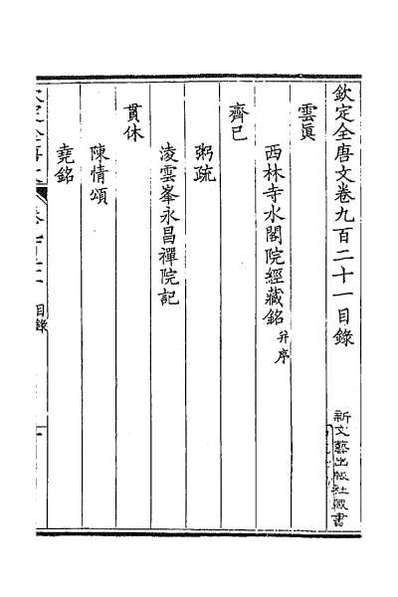 欽定全唐文卷九百二十一目錄
新文藝出版社藏書
雲眞
西林寺水閣院經藏銘并序
齊已
粥疏
凌雲峯永昌禪院記
貫休
陳情頌
堯銘
目錄